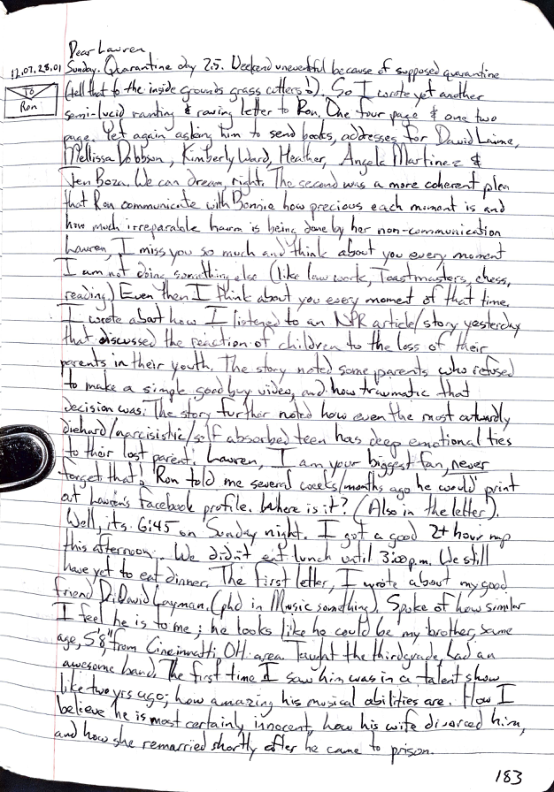 Dear Lauren,
12.07.28.01 Sunday. Quarantine day 25. Weekend uneventful because of supposed quarantine
To
Ron
(tell that to the inside grounds grass cutters). So I wrote yet another
semi-lucid ranting & raving letter to Ron. One four page & one two
page. Yet again asking him to send books, addresses for David Laime,
Mellissa Dobbson, Kimberly Ward, Heather, Angela Martinez &
Jen Boza. We can dream right. The second was a more coherent plea
that Ron communicate with Bonnie how precious each moment is and
how much irreparable harm is being done by her non-communication
Lauren, I miss you so much and think about you every moment
I am not doing something else (like law work, Toastmasters, chess,
reading) Even then I think about you every moment of that time.
I wrote about how I listened to an NPR article/story yesterday
that discussed the reaction of children to the loss of their
parents in their youth. The story noted some parents who refused
to make a simple good buy video, and how traumatic that
decision was. The story further noted how even the most outwardly
diehard/narcisistic/self absorbed teen has deep emotional ties
to their lost parent. Lauren, I am your biggest fan, never
forget that. Ron told me several weeks/months ago he would print
out Lauren's facebook profile. Where is it? (Also in the letter).
Well, its 6:45 on Sunday night. I got a good 2+ hour nap
this afternoon. We didn't eat lunch until 3:00 p.m. We still
have yet to eat dinner. The first letter, I wrote about my good
friend Dr. David Layman, (phd in Music something). Spoke of how similar
I feel he is to me; he looks like he could be my brother, same
age, 5'8", from Cincinnatti, OH area. Taught the third grade, had an
awesome band. The first time I saw him was in a talent show
like two yrs ago; how amazing his musical abilities are. How I
believe he is most certainly innocent, how his wife divorced him,
and how she remarried shortly after he came to prison.
183